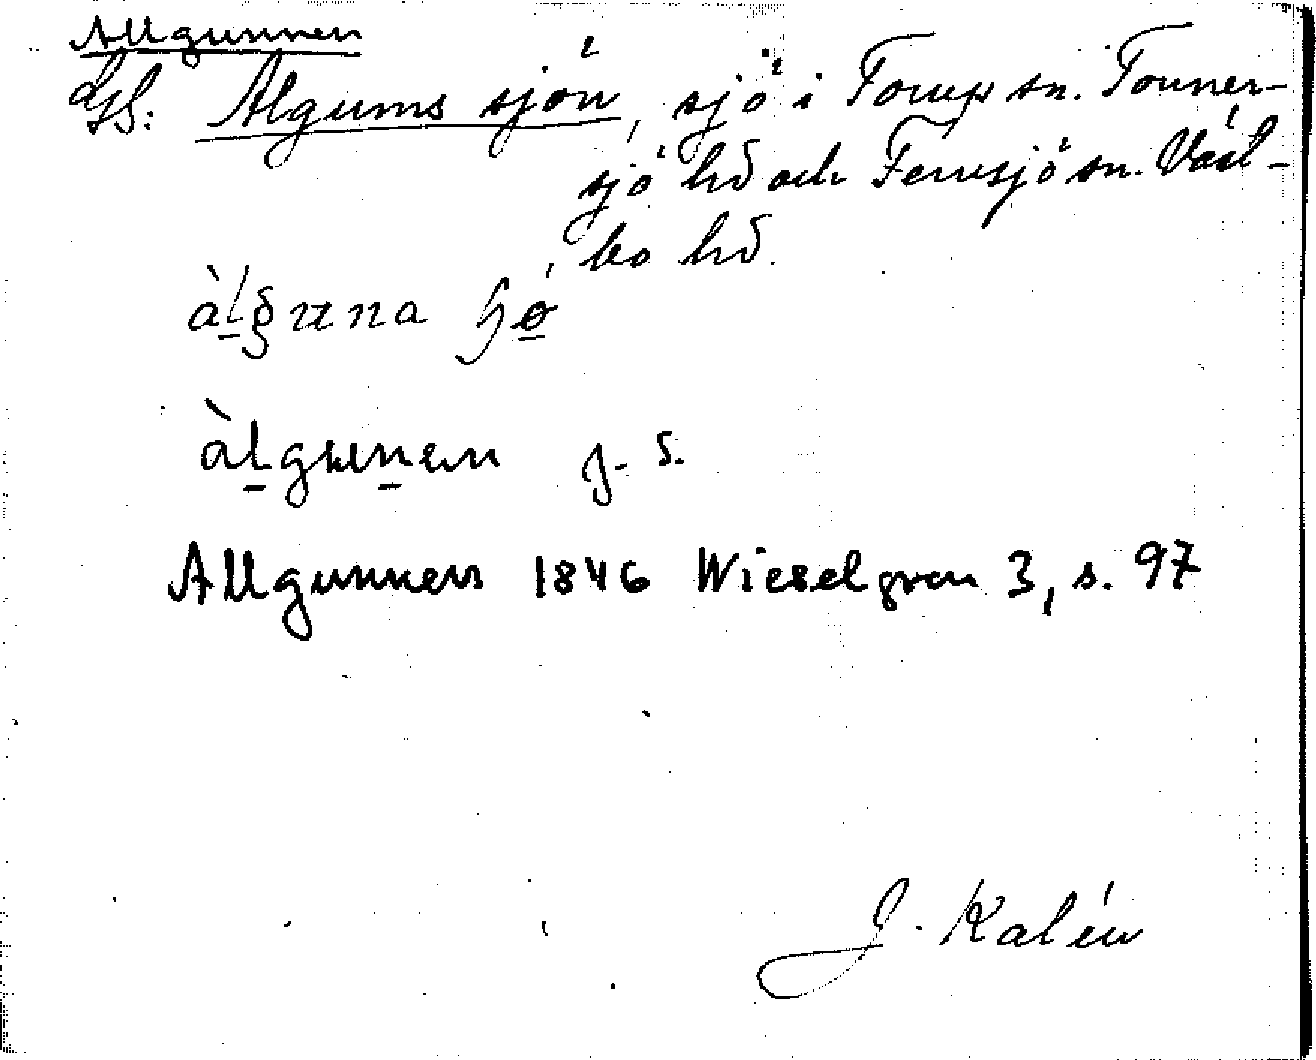 Allgunnen
GS: Algums sjön, sjö i Torup sn. Tönner-
sjö hd och Femsjö sn. Väst-
bo hd.
àlguna
àlgunen J. S.
Allgunnen 1846 Wieselgren 3, s. 97
J. Kalén